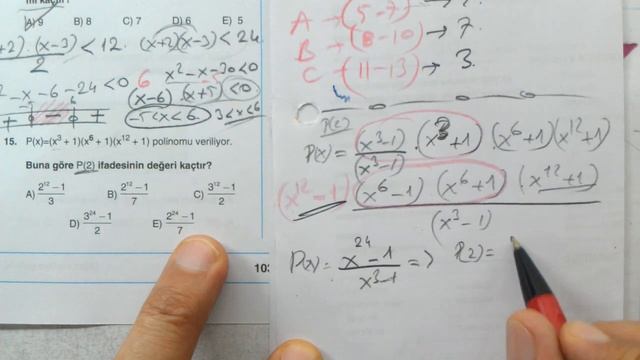 mi kaçtır?
A) 9 B) 8 C) 7 D) 6 E) 5
+2).(x-3) < 12. (x+2)(x-3) < 24
2
-x-6-24<0 6 x²-x-30<0
(x-6) (x+5) <0
+ - +
-5<x<6 3<x<6
15. P(x)=(x³+1)(x⁶+1)(x¹²+1) polinomu veriliyor.
Buna göre P(2) ifadesinin değeri kaçtır?
A) (2¹²-1)/3 B) (2¹²-1)/7 C) (3¹²-1)/2
D) (3²⁴-1)/2 E) (2²⁴-1)/7
A → (5-7)
B → (8-10) → 7.
C → (11-13) → 3.
P(x) = (x³-1)/(x³-1) . (x³+1) (x⁶+1)(x¹²+1)
(x¹²-1) (x⁶-1) (x⁶+1) . (x¹²+1)
(x³-1)
P(x) = (x²⁴-1)/(x³-1) => P(2) =